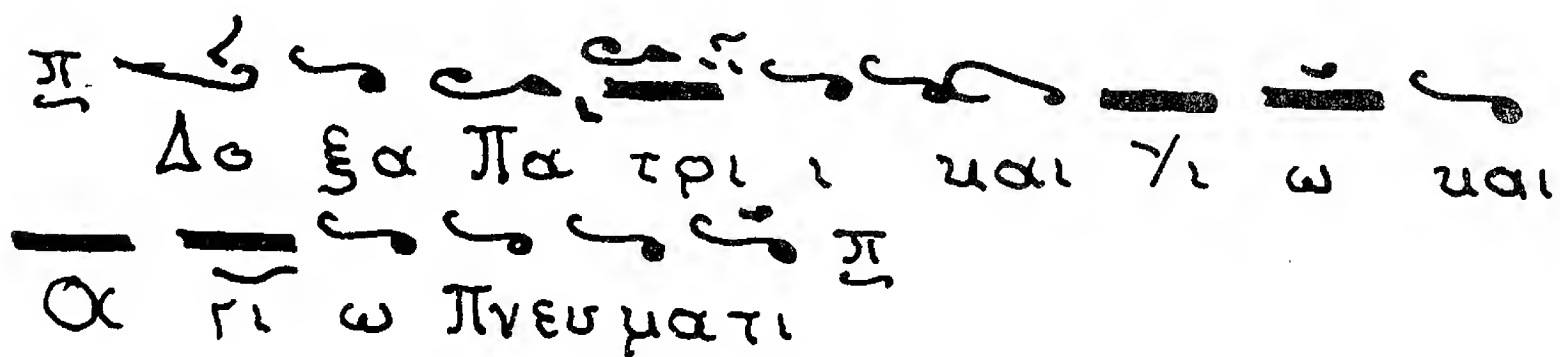 π Δο ξα Πα τρι ι και Υι ω και
α γι ω Πνευ μα τι π